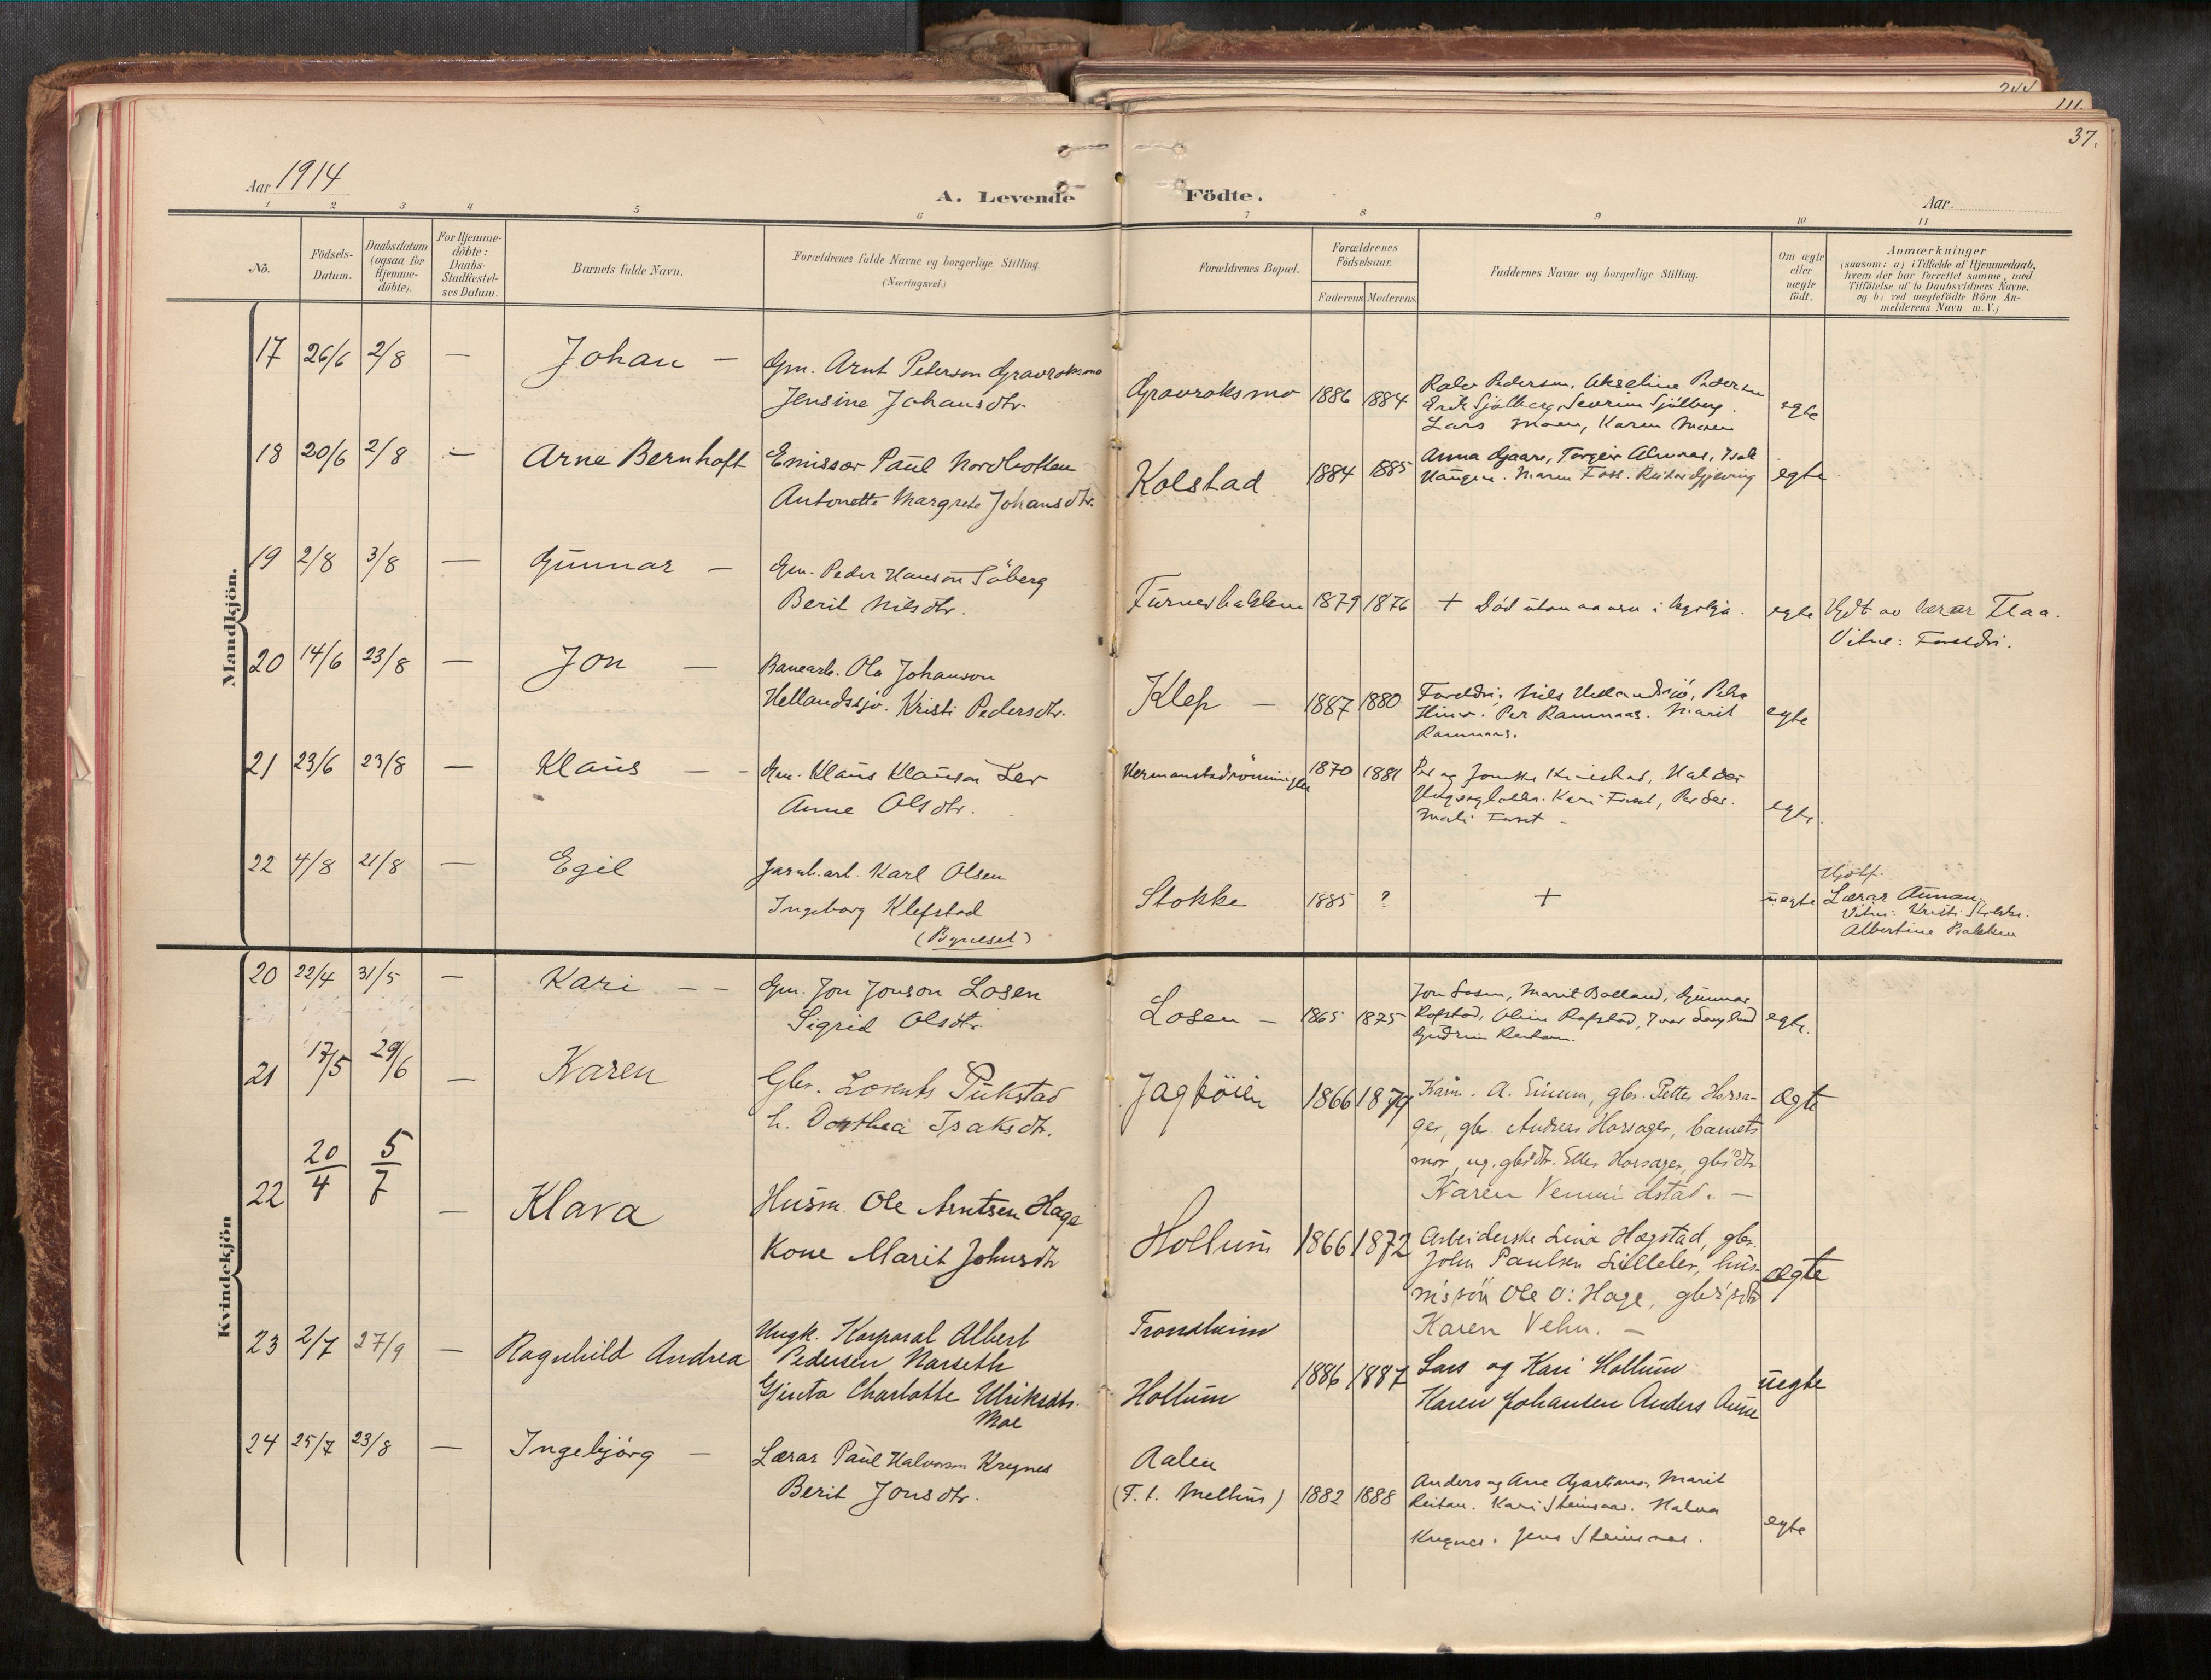 244
111.
37.
Aar 1914
A. Levende Födte.
Aar
1 2 3 4 5 6 7 8 9 10 11
No.
Födsels-
Datum.
Daabsdatum
(ogsaa for
Hjemme-
döbte).
For Hjemme-
döbte:
Daabs-
Stadfæstel-
ses Datum.
Barnets fulde Navn.
Forældrenes fulde Navne og borgerlige Stilling
(Næringsvei.)
Forældrenes Bopæl.
Forældrenes
Födselsaar.
Faderens Moderens
Faddernes Navne og borgerlige Stilling.
Om ægte
eller
uægte
födt.
Anmærkninger
(saasom: a) i Tilfælde af Hjemmedaab,
hvem der har forrettet samme, med
Tilföielse af to Daabsvidners Navne,
og b) ved uægtefödte Börn An-
melderens Navn m. V.)
Mandkjön.
17 26/6 2/8 — Johan —
Gm. Arnt Peterson Gravroksmo
Jensine Johansdtr.
Gravroksmo 1886 1884
Pedersen, Akseline Pedersen
Erik Sjölberg, Sevrine Sjölberg.
Lars Moen, Karen Moen
egte
18 20/6 2/8 — Arne Bernhoft
Emissær Paul Nordbotten
Antonette Margrete Johansdtr.
Kolstad 1884 1885
Anna Gaare, Torgeir
Haugen. Maren Foss.
egte
19 2/8 3/8 — Gunnar —
Gm. Peder Hanson Söberg
Berit Nilsdtr.
Furnesbakken 1879 1876
+ Död
egte
Hjdt av lærar Flaa.
Vitne: Foreldri.
20 14/6 23/8 — Jon —
Banearb. Ola Johanson
Hellandssjö. Kristi Pedersdtr.
Klep — 1887 1880
Foreldri, Nils Hellandsjö, Petra
Per Ramnaas. Marit
Ramnaas.
egte
21 23/6 23/8 — Klaus — -
Gm. Klaus Klauson Ler
Anne Olsdtr.
1870 1881
Per og
Kari Forset, Per Ler.
Mali Forset -
egte.
22 4/8 21/8 — Egil
Jarnb.arb. Karl Olsen
Ingeborg Klefstad
(Byneset)
Stokke 1885 ?
+
uegte
Lærar Aunan.
Vitne: Kristi Stokke.
Albertine Bakken
Kvindekjön
20 22/4 31/5 — Kari — -
Gm. Jon Jonson Losen
Sigrid Olsdtr.
Losen — 1865 1875
Jon Losen, Marit Bolland, Gunnar
Rofstad, Oline Rofstad, Ivar
Gudrun
egte.
21 17/5 29/6 — Karen
Gbr. Lorents Pukstad
h. Dorthea Isaksdtr.
Jagtöien 1866 1879
A. Einum, gbr. Petter Horsa-
ger, gbr. Andreas Horsager, barnets
mor, ug. gbrdtr. Ellen Horsager, gbrdtr
Karen Vennustad. —
Ægte
22 20/4 5/7 — Klara
Husm. Ole Arntsen Hage
Kone Marit Johnsdtr
Hollum 1866 1872
Arbeiderske Lina Hægstad, gbr.
John Paulsen Lilleler, hus-
m's sön Ole O: Hage, gbr's dtr
Karen Vehn. —
ægte
23 2/7 27/9 — Ragnhild Andrea
Ungk. Korporal Albert
Pedersen Narseth
Gjenta Charlotte Ulriksdtr.
Moe
Trondheim
Hollum
1886 1887
Lars og Kari Hollum
Karen Johansen Anders Aune
uegte
24 25/7 23/8 — Ingebjörg —
Lærar Paul Halvorson Krygnes
Berit Jonsdtr.
Aalen
(F. t. Melhus) 1882 1888
Anders og Ane Marit
Reitan. Kari Steinsaas. Halvor
Krygnes. Jens
egte